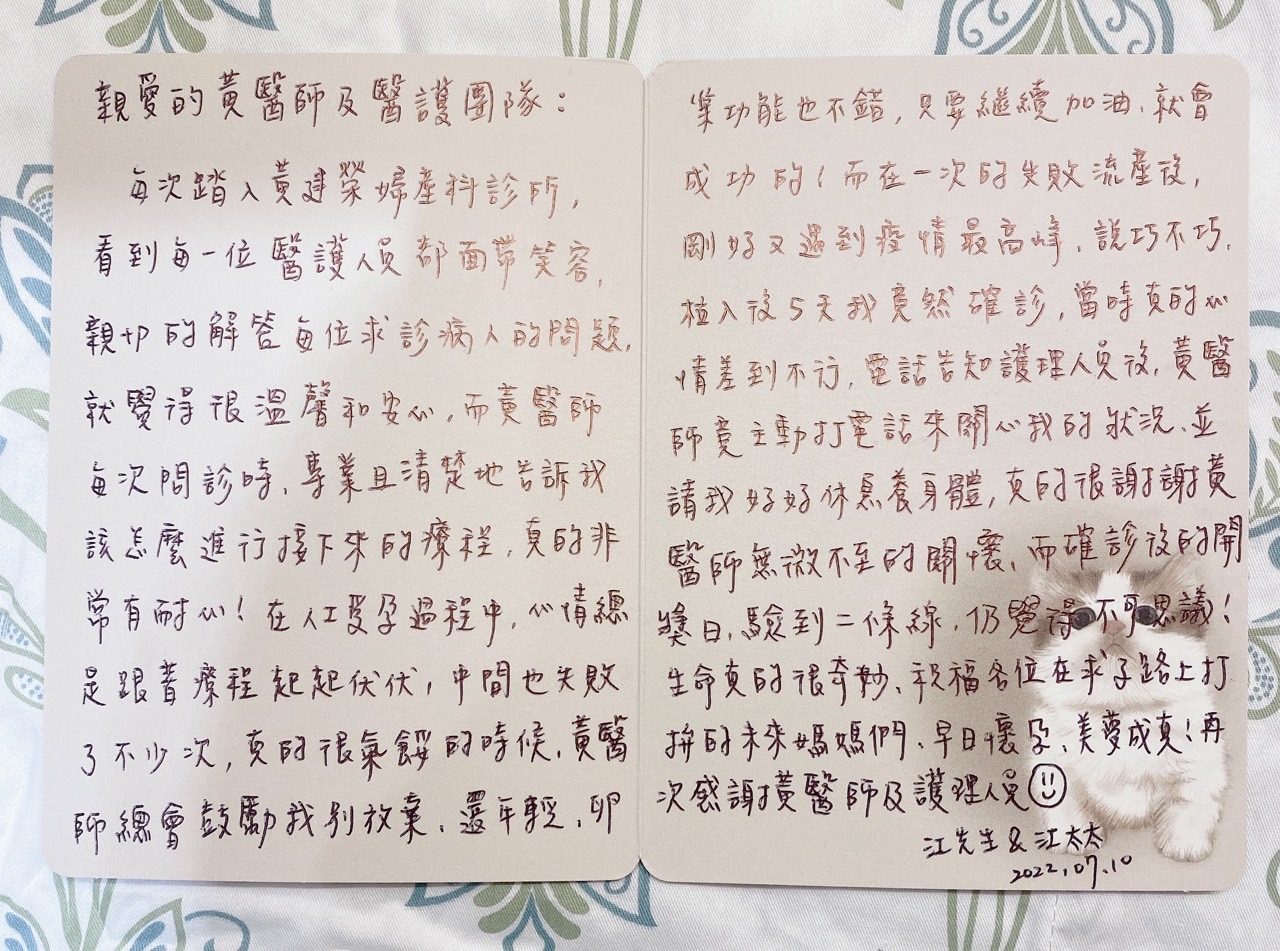 親愛的黃醫師及醫護團隊：
每次踏入黃建榮婦產科診所，
看到每一位醫護人員都面帶笑容，
親切的解答每位求診病人的問題，
就覺得很溫馨和安心，而黃醫師
每次問診時、專業且清楚地告訴我
該怎麼進行接下來的療程，真的非
常有耐心！在人工受孕過程中，心情總
是跟著療程起起伏伏，中間也失敗
了不少次，真的很氣餒的時候，黃醫
師總會鼓勵我別放棄、還年輕、卵
巢功能也不錯，只要繼續加油、就會
成功的！而在一次的失敗流產後，
剛好又遇到疫情最高峰、說巧不巧，
植入後5天我竟然確診，當時真的心
情差到不行，電話告知護理人員後，黃醫
師竟主動打電話來關心我的狀況、並
請我好好休息養身體，真的很謝謝黃
醫師無微不至的關懷、而確診後的開
獎日，驗到二條線，仍覺得不可思議！
生命真的很奇妙、祝福各位在求子路上打
拚的未來媽媽們、早日懷孕、美夢成真！再
次感謝黃醫師及護理人員
江先生 & 江太太
2022.07.10